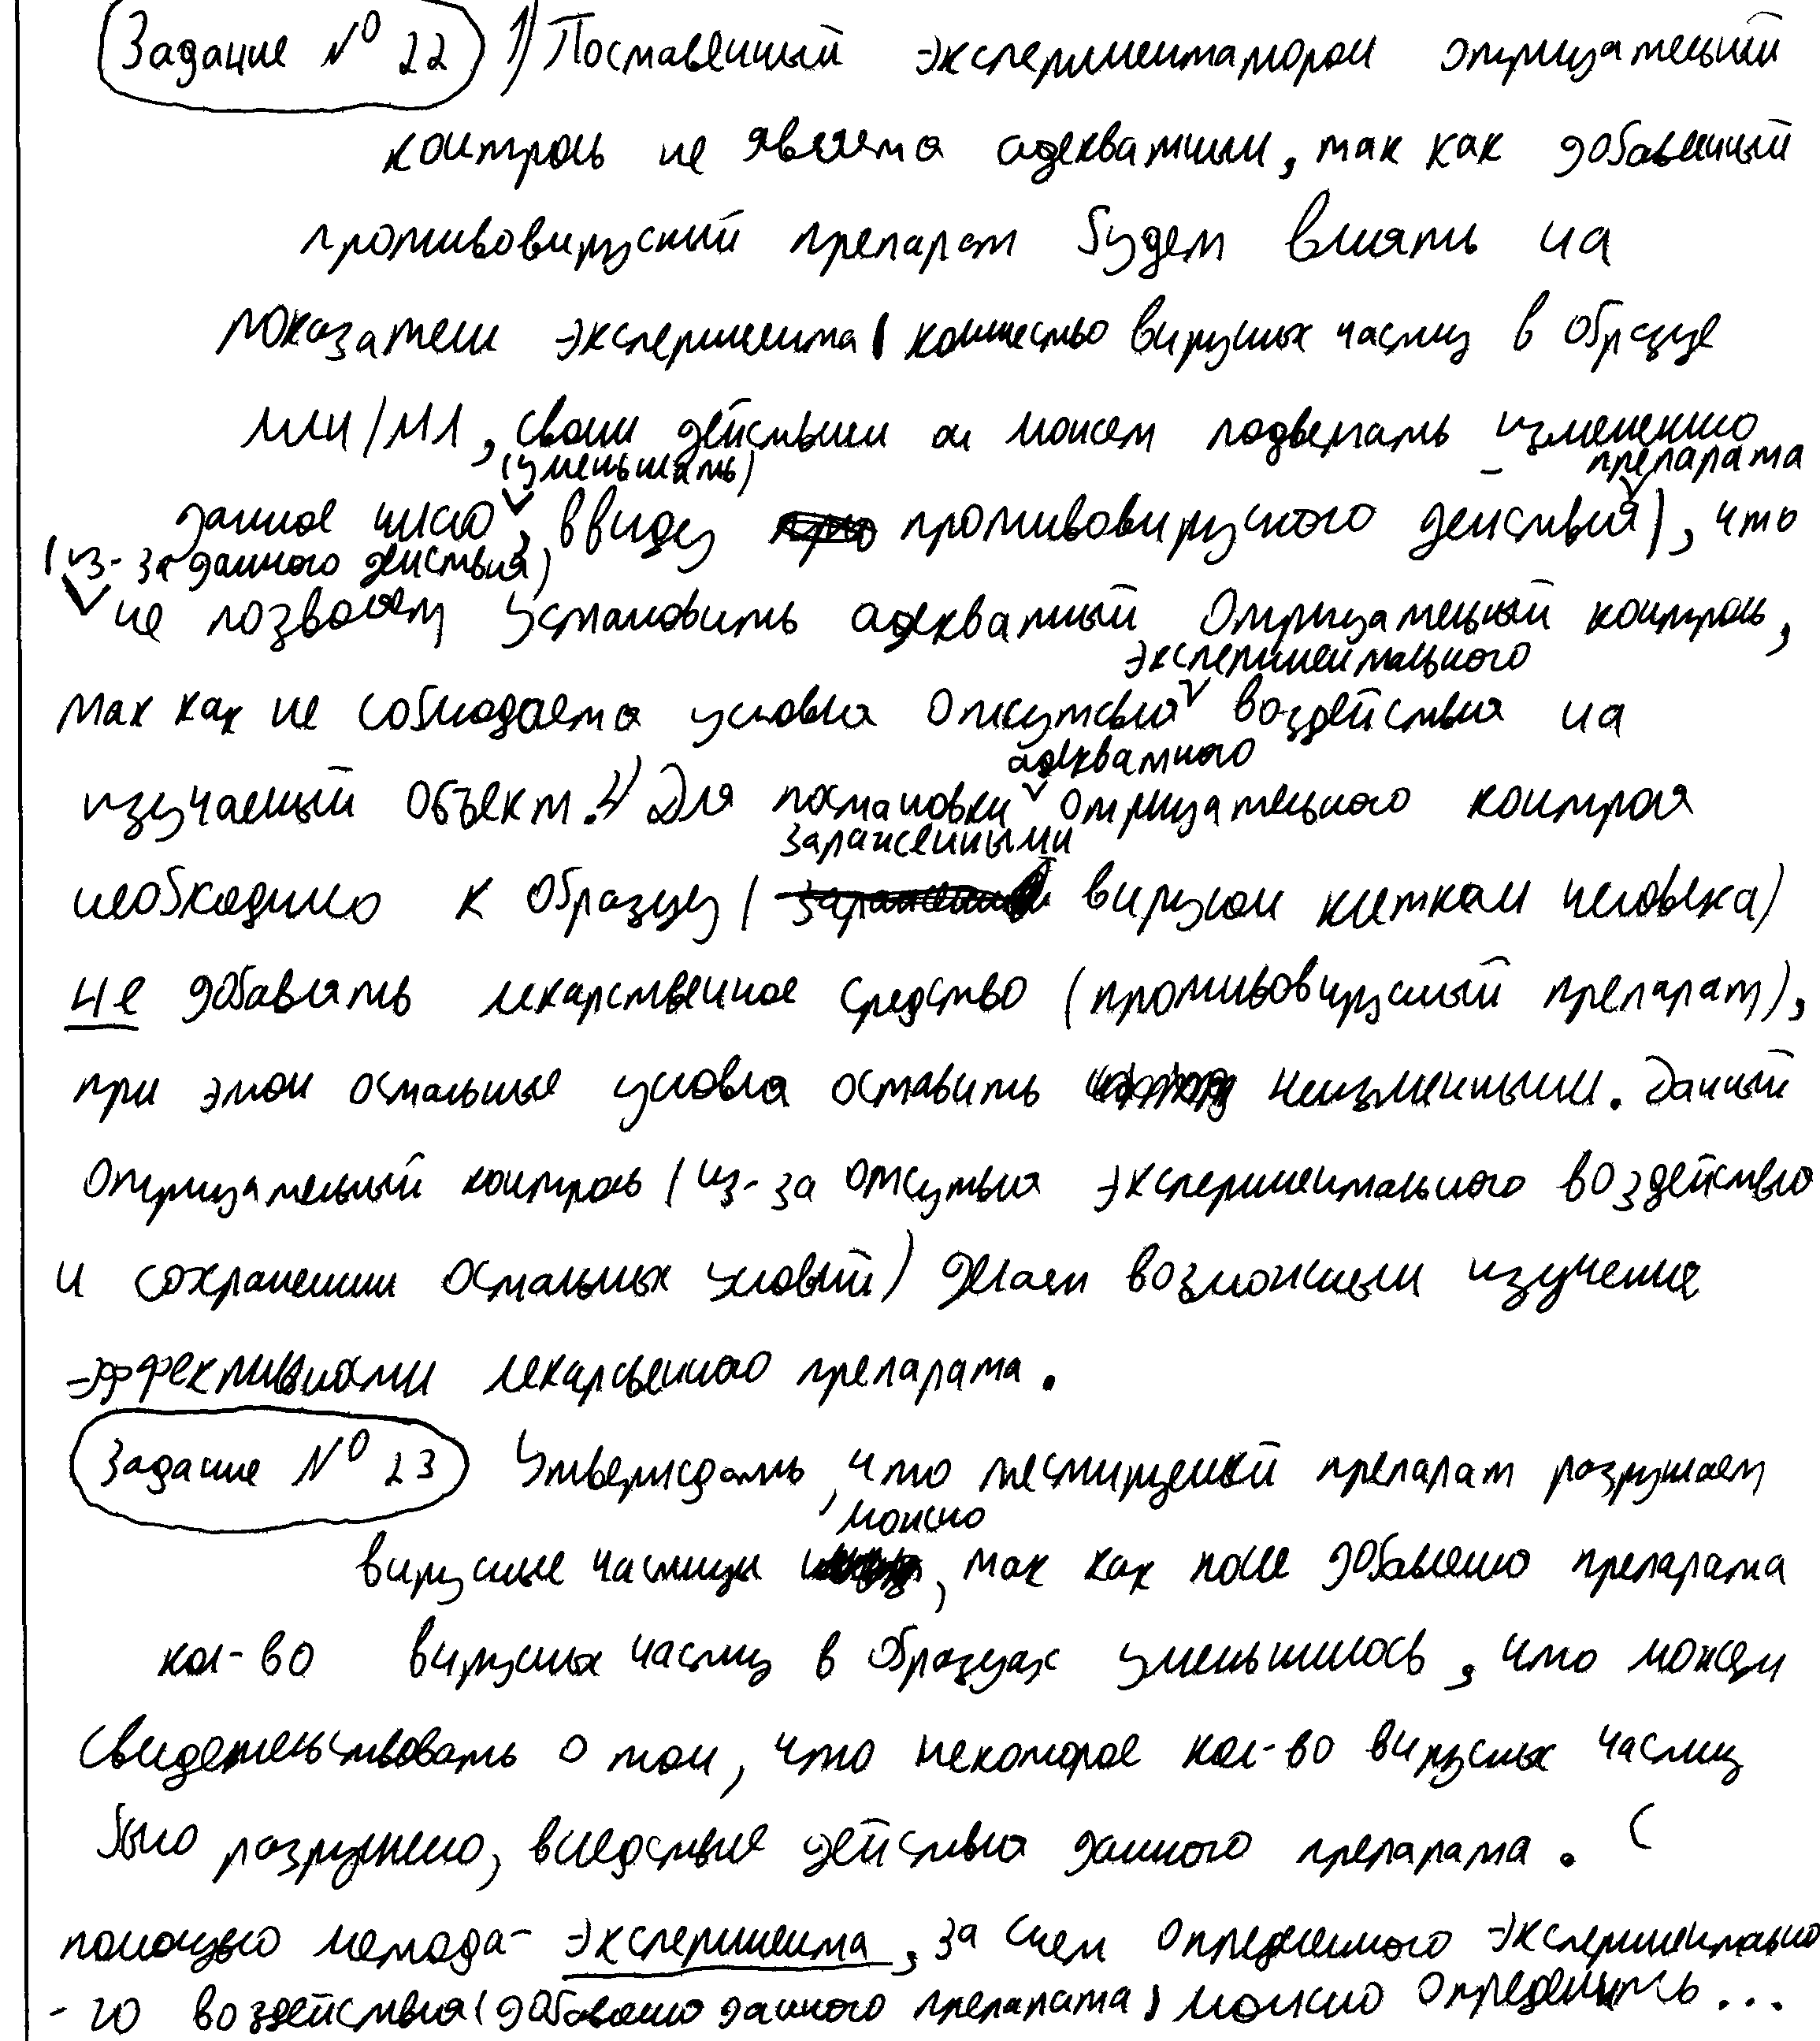 Задание № 22 1) Поставленный экспериментатором отрицательный
контроль не является адекватным, так как добавленный
противовирусный препарат будет влиять на
показатели эксперимента ( количество вирусных частиц в образце
млн/мл, своим действием он может подвергать изменению
(уменьшать) препарата
данное число, ввиду противовирусного действия), что
(из-за данного действия)
не позволяет установить адекватный отрицательный контроль,
экспериментального
так как не соблюдается условия отсутствия воздействия на
адекватного
изучаемый объект. 2) Для постановки отрицательного контроля
зараженными
необходимо к образцу ( вирусом клеткам человека)
не добавлять лекарственное средство (противовирусный препарат),
при этом остальные условия оставить неизменными. Данный
отрицательный контроль (из-за отсутствия экспериментального воздействия
и сохранении остальных условий) делает возможным изучение
эффективности лекарственного препарата.
Задание № 23 Утверждать, что тестируемый препарат разрушает
можно
вирусные частицы, так как после добавления препарата
кол-во вирусных частиц в образцах уменьшилось, что может
свидетельствовать о том, что некоторое кол-во вирусных частиц
было разрушено, вследствие действия данного препарата. С
помощью метода- эксперимента, за счет определенного экспериментально
- го воздействия (добавлению данного препарата) можно определить...